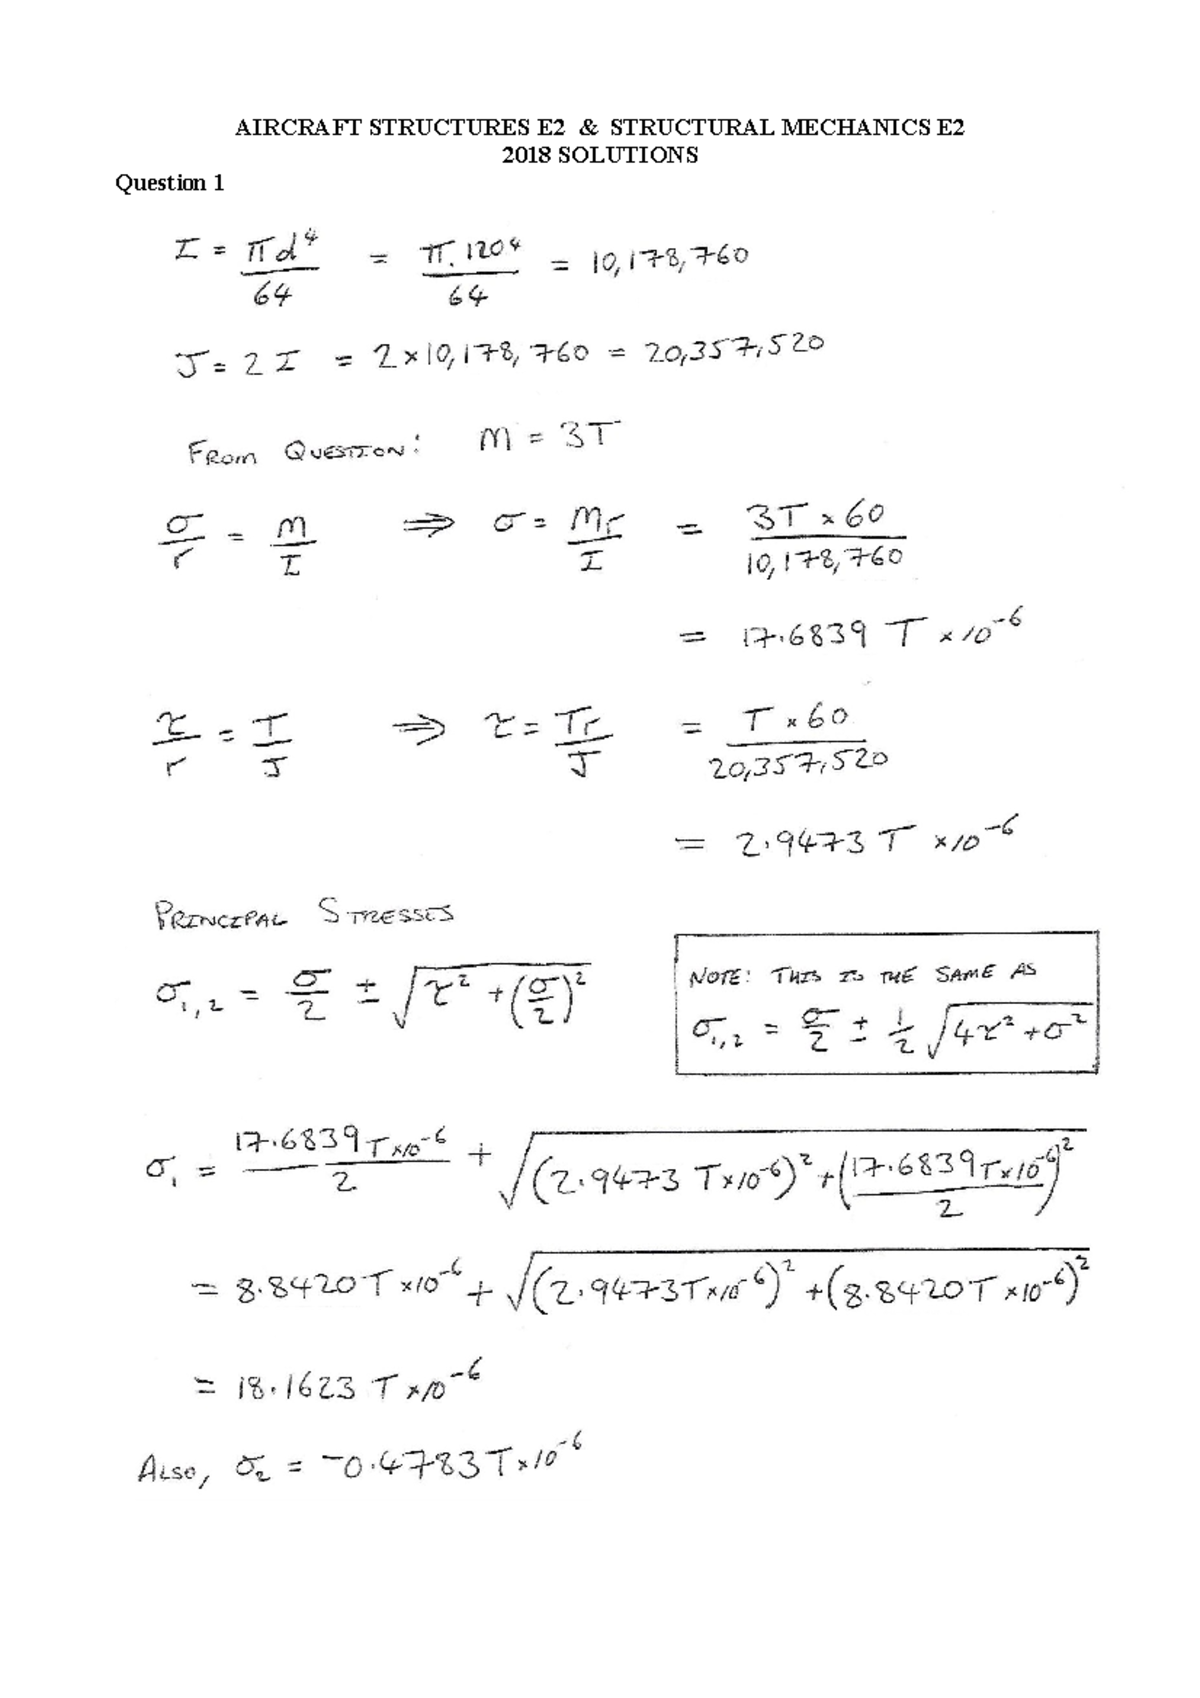 AIRCRAFT STRUCTURES E2 & STRUCTURAL MECHANICS E2
2018 SOLUTIONS
Question 1
I = πd⁴/64 = π.120⁴/64 = 10,178,760
J = 2I = 2×10,178,760 = 20,357,520
FROM QUESTION: M = 3T
σ/r = M/I ⇒ σ = Mr/I = 3T × 60/10,178,760
= 17.6839 T ×10⁻⁶
τ/r = T/J ⇒ τ = Tr/J = T × 60/20,357,520
= 2.9473 T ×10⁻⁶
PRINCIPAL STRESSES
σ₁,₂ = σ/2 ± √(τ² + (σ/2)²)
NOTE: THIS IS THE SAME AS
σ₁,₂ = σ/2 ± 1/2 √(4τ² + σ²)
σ₁ = 17.6839T×10⁻⁶/2 + √((2.9473 T×10⁻⁶)² + (17.6839T×10⁻⁶/2)²)
= 8.8420T ×10⁻⁶ + √((2.9473T×10⁻⁶)² + (8.8420T ×10⁻⁶)²)
= 18.1623 T ×10⁻⁶
ALSO, σ₂ = ⁻0.4783T×10⁻⁶